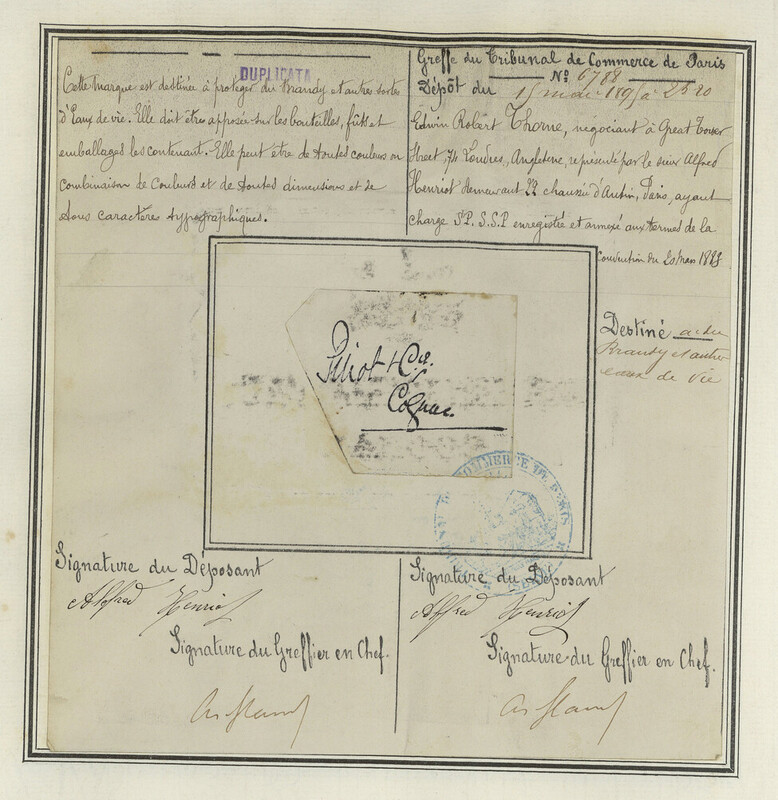 DUPLICATA
Cette marque est destinée à protéger du Brandy et autres sortes
d'Eaux de vie. Elle doit être apposée sur les bouteilles, fûts et
emballages les contenant. Elle peut être de toutes couleurs ou
combinaison de couleurs et de toutes dimensions et de
tous caractères typographiques.
Greffe du Tribunal de Commerce de Paris
No 6788
Dépôt du 15 mai 1895 à 2h20
Edwin Robert Thorne, négociant à Great Tower
Street, 74 Londres, Angleterre, représenté par le sieur Alfred
Henriot demeurant 22 chaussée d'Antin, Paris, ayant
charge SP. S.S.P enregistrée et annexé aux termes de la
Convention du 20 Mars 1883
Destiné à du
Brandy et autres
eaux de vie
& Cie.
Cognac.
COMMERCE DE PARIS
Signature du Déposant
Alfred Henriot
Signature du Greffier en Chef.
Signature du Déposant
Alfred Henriot
Signature du Greffier en Chef.